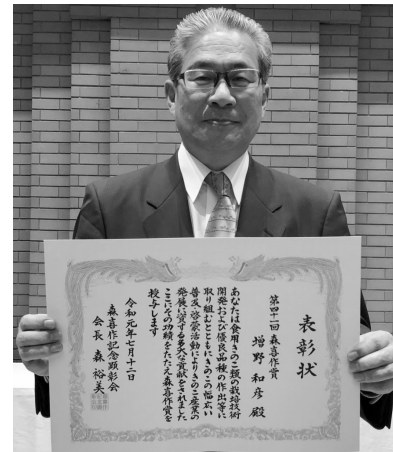 表彰状
第四十一回 森喜作賞
増野和彦 殿
あなたは食用きのこ類の栽培技術
開発および優良品種の作出等に
取り組むとともにきのこの幅広い
普及・啓蒙活動によりきのこ産業の
発展に資する多大な貢献をされました
ここにその功績をたたえ森喜作賞を
授与します
令和元年七月十二日
森喜作記念顕彰会
会長 森裕美